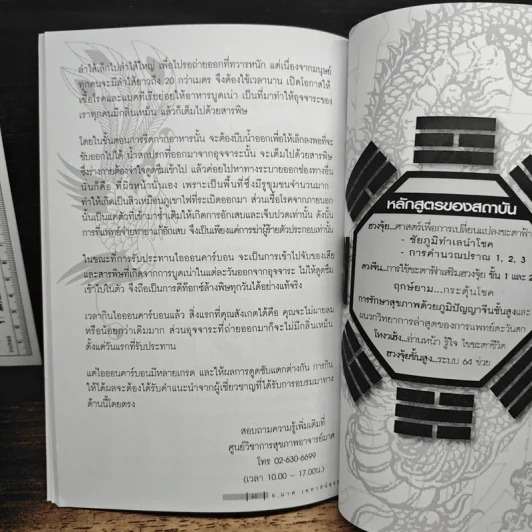 ลำไส้เล็กไปลำไส้ใหญ่ เพื่อไปรอถ่ายออกที่ทวารหนัก แต่เนื่องจากมนุษย์
ทุกคนจะมีลำไส้ยาวถึง 20 กว่าเมตร จึงต้องใช้เวลานาน เปิดโอกาสให้
เชื้อโรคและแบคทีเรียย่อยให้อาหารบูดเน่า เป็นที่มาทำให้อุจจาระของ
เราทุกคนมีกลิ่นเหม็น แล้วก็เต็มไปด้วยสารพิษ
โดยในขั้นตอนการรีดกากอาหารนั้น จะต้องบีบน้ำออกเพื่อให้เล็กลงพอที่จะ
ขับออกไปได้ น้ำสกปรกที่ออกมาจากอุจจาระนั้น จะเต็มไปด้วยสารพิษ
ซึ่งร่างกายต้องจำใจดูดซึมเข้าไป แล้วค่อยไปหาทางระบายออกช่องทางอื่น
นั่นก็คือ ที่ผิวหน้านั่นเอง เพราะเป็นพื้นที่ซึ่งมีรูขุมขนจำนวนมาก
ทำให้เกิดเป็นสิวเหมือนภูเขาไฟที่ระเบิดออกมา ส่วนเชื้อโรคจากภายนอก
นั้นเป็นแค่ตัวที่เข้ามาซ้ำเติมให้เกิดการอักเสบและเจ็บปวดเท่านั้น ดังนั้น
การที่แพทย์จ่ายทายาแก้อักเสบ จึงเป็นเพียงแค่การฆ่าผู้ร้ายตัวประกอบเท่านั้น
ในขณะที่การรับประทานไอออนคาร์บอน จะเป็นการเข้าไปจับของเสีย
และสารพิษที่เกิดจากการบูดเน่าในแต่ละวันออกจากอุจจาระ ไม่ให้ดูดซึม
เข้าไปในตัว จึงถือเป็นการดีท็อกซ์ล้างพิษทุกวันได้อย่างแท้จริง
เวลากินไอออนคาร์บอนแล้ว สิ่งแรกที่คุณสังเกตได้คือ คุณจะไม่ผายลม
หรือน้อยกว่าเดิมมาก ส่วนอุจจาระที่ถ่ายออกมาก็จะไม่มีกลิ่นเหม็น
ตั้งแต่วันแรกที่รับประทาน
แต่ไอออนคาร์บอนมีหลายเกรด และให้ผลการดูดซับแตกต่างกัน การกิน
ให้ได้ผลจะต้องได้รับคำแนะนำจากผู้เชี่ยวชาญที่ได้รับการอบรมมาทาง
ด้านนี้โดยตรง
สอบถามความรู้เพิ่มเติมที่
ศูนย์วิชาการสุขภาพอาจารย์มาศ
โทร 02-630-6699
(เวลา 10.00 – 17.00น.)
หลักสูตรของสถาบัน
ฮวงจุ้ย...ศาสตร์เพื่อการเปลี่ยนแปลงชะตาฟ้า
- ชัยภูมิทำเลนำโชค
- การคำนวณปราณ 1, 2, 3
ดวงจีน...การใช้ชะตาฟ้าเสริมฮวงจุ้ย ชั้น 1 และ 2
ฤกษ์ยาม...กระตุ้นโชค
การรักษาสุขภาพด้วยภูมิปัญญาจีนชั้นสูงและ
ผนวกวิทยาการล่าสุดของการแพทย์ตะวันตก
โหงวเฮ้ง...อ่านหน้า รู้ใจ ไขชะตาชีวิต
ฮวงจุ้ยชั้นสูง...ระบบ 64 ข่วย